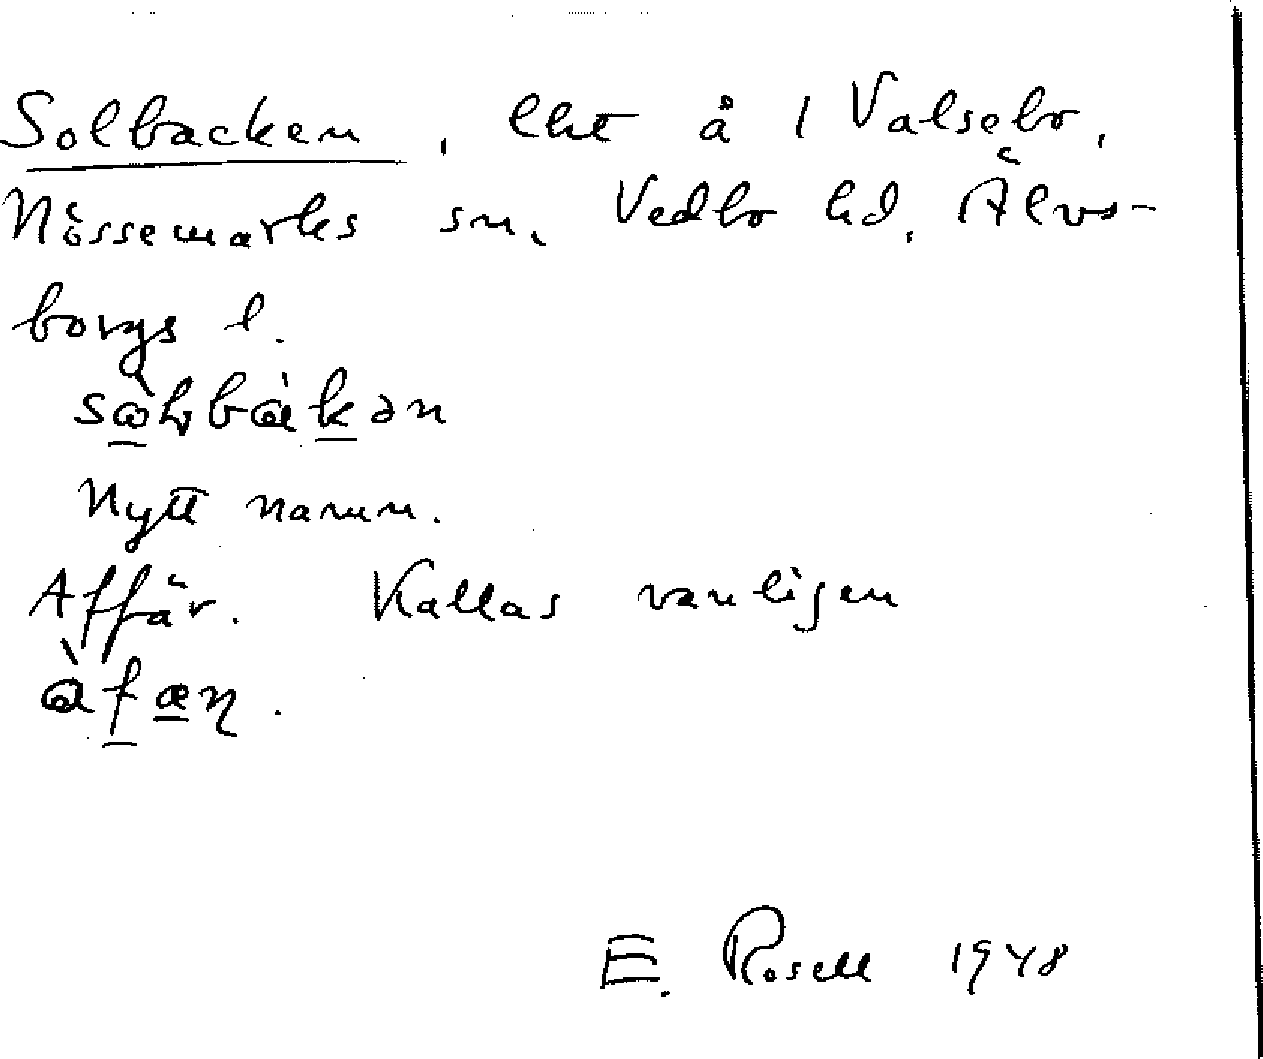 Solbacken, lht å 1 Valsebo,
Nössemarks sn, Vedbo hd, Älvs-
borgs l.
Nytt namn.
Affär. Kallas vanligen
E. Rosell 1948